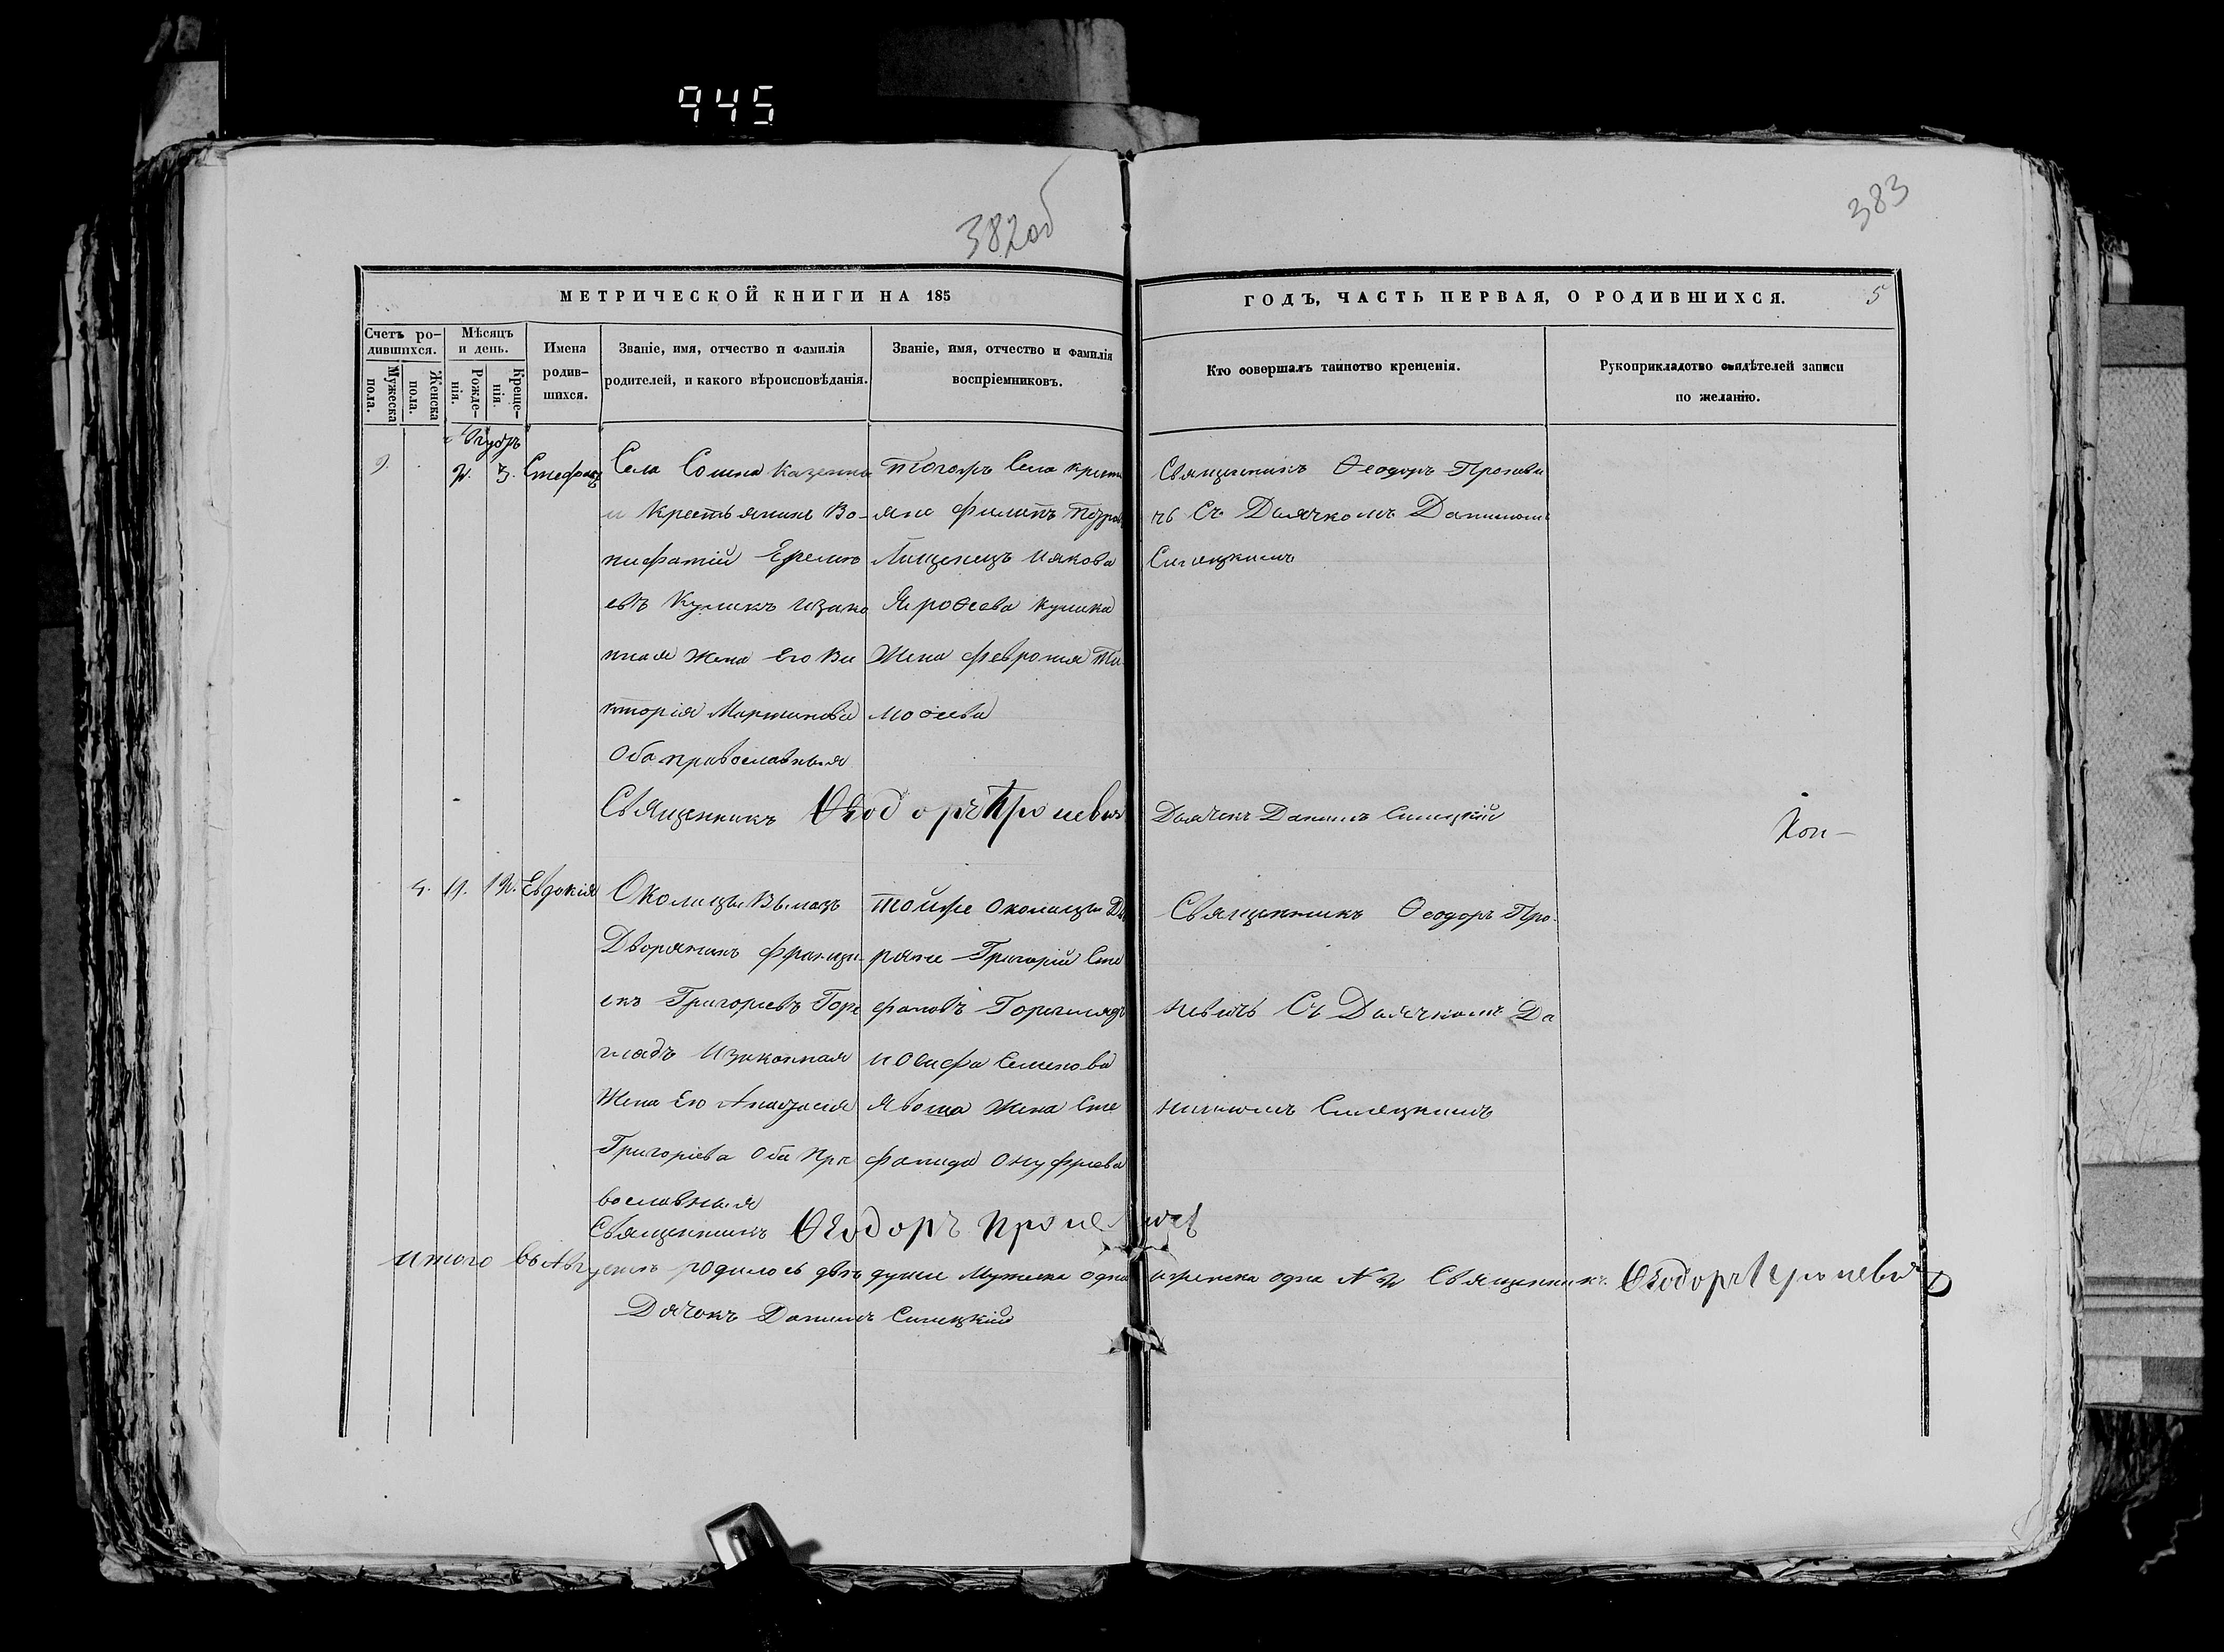 945
382об
383
МЕТРИЧЕСКОЙ КНИГИ НА 185
ГОДЪ, ЧАСТЬ ПЕРВАЯ, О РОДИВШИХСЯ.
5
Счетъ ро-
дившихся.
Мужеска
пола.
Женска
пола.
Мѣсяцъ
и день.
Рожде-
нія.
Креще-
нія.
Имена
родив-
шихся.
Званіе, имя, отчество и фамилія
родителей, и какого вѣроисповѣданія.
Званіе, имя, отчество и фамилія
воспріемниковъ.
Кто совершалъ таинство крещенія.
Рукоприкладство свидѣтелей записи
по желанію.
2. 3. Стефанъ
Села Сошна Казенны
и Крестьянинъ Во-
нифатій Ереміе
евъ Куликъ изако
нная Жена Его Ви
кторія Мартинова
Оба православныя
Священникъ Ѳеодоръ Проневич
тогожъ Села крестя
яне Филипъ
Лищенецъ Иякова
Ярофеева кулика
Жена Феврония Ти
мофеева
Священникъ Ѳеодоръ Проневи
чъ Съ Дьячкомъ Даниломъ
Силецкимъ
Дьячекъ Данилъ Силецкій
Кон-
4. 11. 12. Евдокія
Околицы Вымазъ
Дворянинъ Францы
екъ Григорьевъ Горе
глядъ Изаконная
Жена Его Анастасия
Григоріева Оба пра
вославныя
Священникъ Ѳеодоръ Проневичъ
тойже околицы Дво
ряне Григорій Сте
фановъ Гореглядъ
иОсифа Семенова
Явоша Жена Сте
фанида Онуфрьева
Священникъ Ѳеодоръ Про-
невичъ Съ Дьячкомъ Да
ниломъ Силецкимъ
Итого въ Августѣ родилось двѣ душы Мужеска одна Женска одна N 2 Священникъ Ѳеодоръ Проневичъ
Дячокъ Данилъ Силецкий